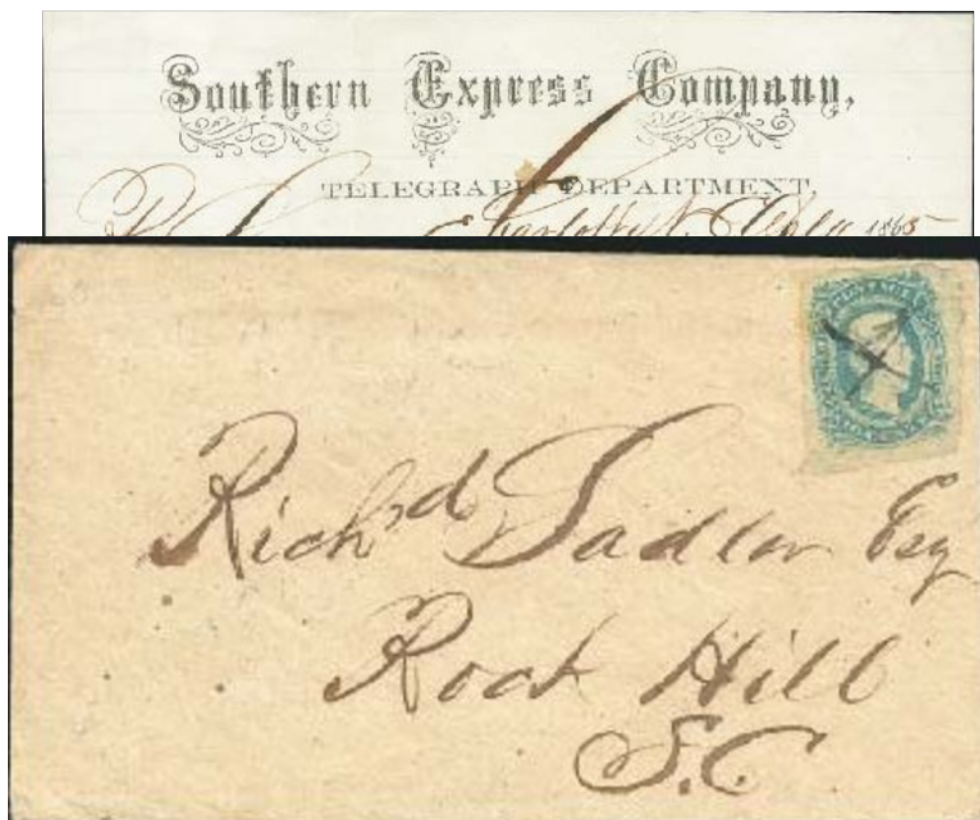 Southern Express Company,
TELEGRAPH DEPARTMENT,
Charlotte N. 1865
Rich'd Sadler Esq
Rock Hill
S.C.